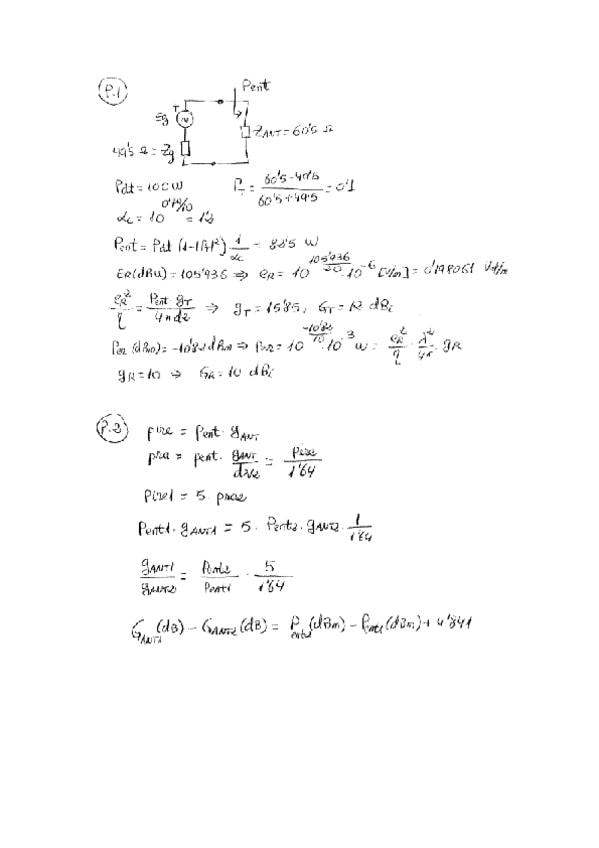 P.1
Pent
T
Eg
Z_ANT = 60'5 Ω
49'5 Ω = Zg
Pdt = 100 W
= 0'1
αc = 10 = 1'2
Pent = Pdt (1-|Γ|²) 1/αc = 82'5 W
ER(dBu) = 105'936 ⇒ eR = 10^(105'936/20) · 10^-6 [V/m] = 0'198061 V/m
eR²/η = Pent·gT/4πd² ⇒ gT = 15'85, GT = 12 dBi
PR (dBm) = -10'82 dBm ⇒ PR = 10^(-10'82/10) · 10^-3 W = eR²/η · λ²/4π · gR
gR = 10 ⇒ GR = 10 dBi
P.2
pire = Pent · gANT
pra = pent · gANT/dλ/2 = pire/1'64
pire1 = 5 pra2
Pent1 · gANT1 = 5 · Pent2 · gANT2 · 1/1'64
gANT1/gANT2 = Pent2/Pent1 · 5/1'64
GANT1(dB) - GANT2(dB) = Pent2(dBm) - Pent1(dBm) + 4'841